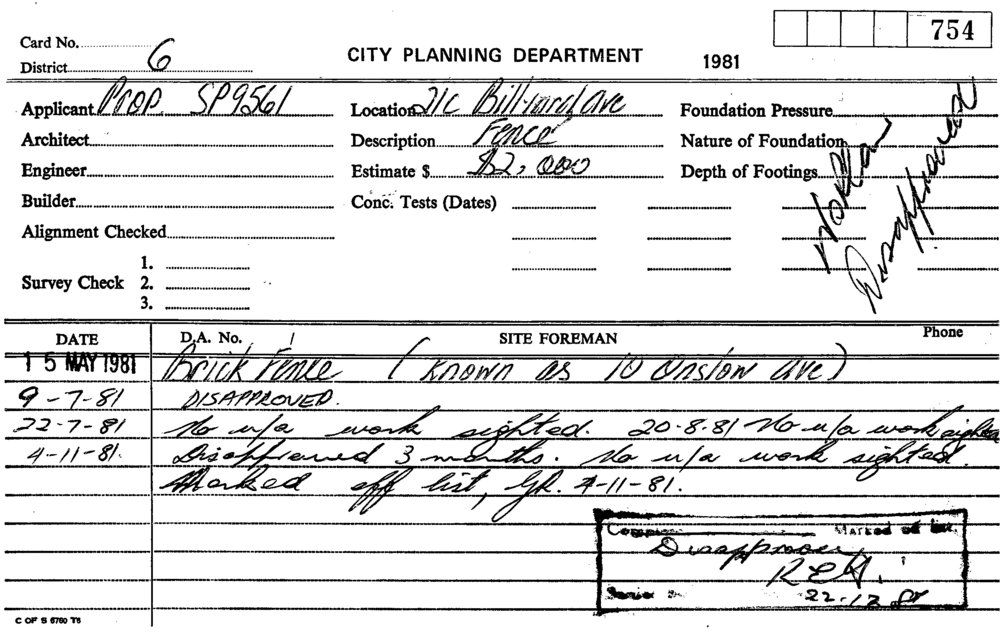 754
Card No.
District 6
CITY PLANNING DEPARTMENT 1981
Applicant Prop. SP9561 Location 21c Billyard Ave Foundation Pressure
Architect Description Fence Nature of Foundation
Engineer Estimate $ $2,000 Depth of Footings
Builder Conc. Tests (Dates)
Alignment Checked
Disapproved
1.
Survey Check 2.
3.
DATE D.A. No. SITE FOREMAN Phone
15 MAY 1981 Brick Fence (known as 10 Onslow Ave)
9-7-81 DISAPPROVED.
22-7-81 No u/a work sighted. 20-8-81 No u/a work sighted
4-11-81. Disapproved 3 months. No u/a work sighted.
Marked off list, 4-11-81.
Marked off list.
Disapproved
22-12-81
C OF S 6760 T6